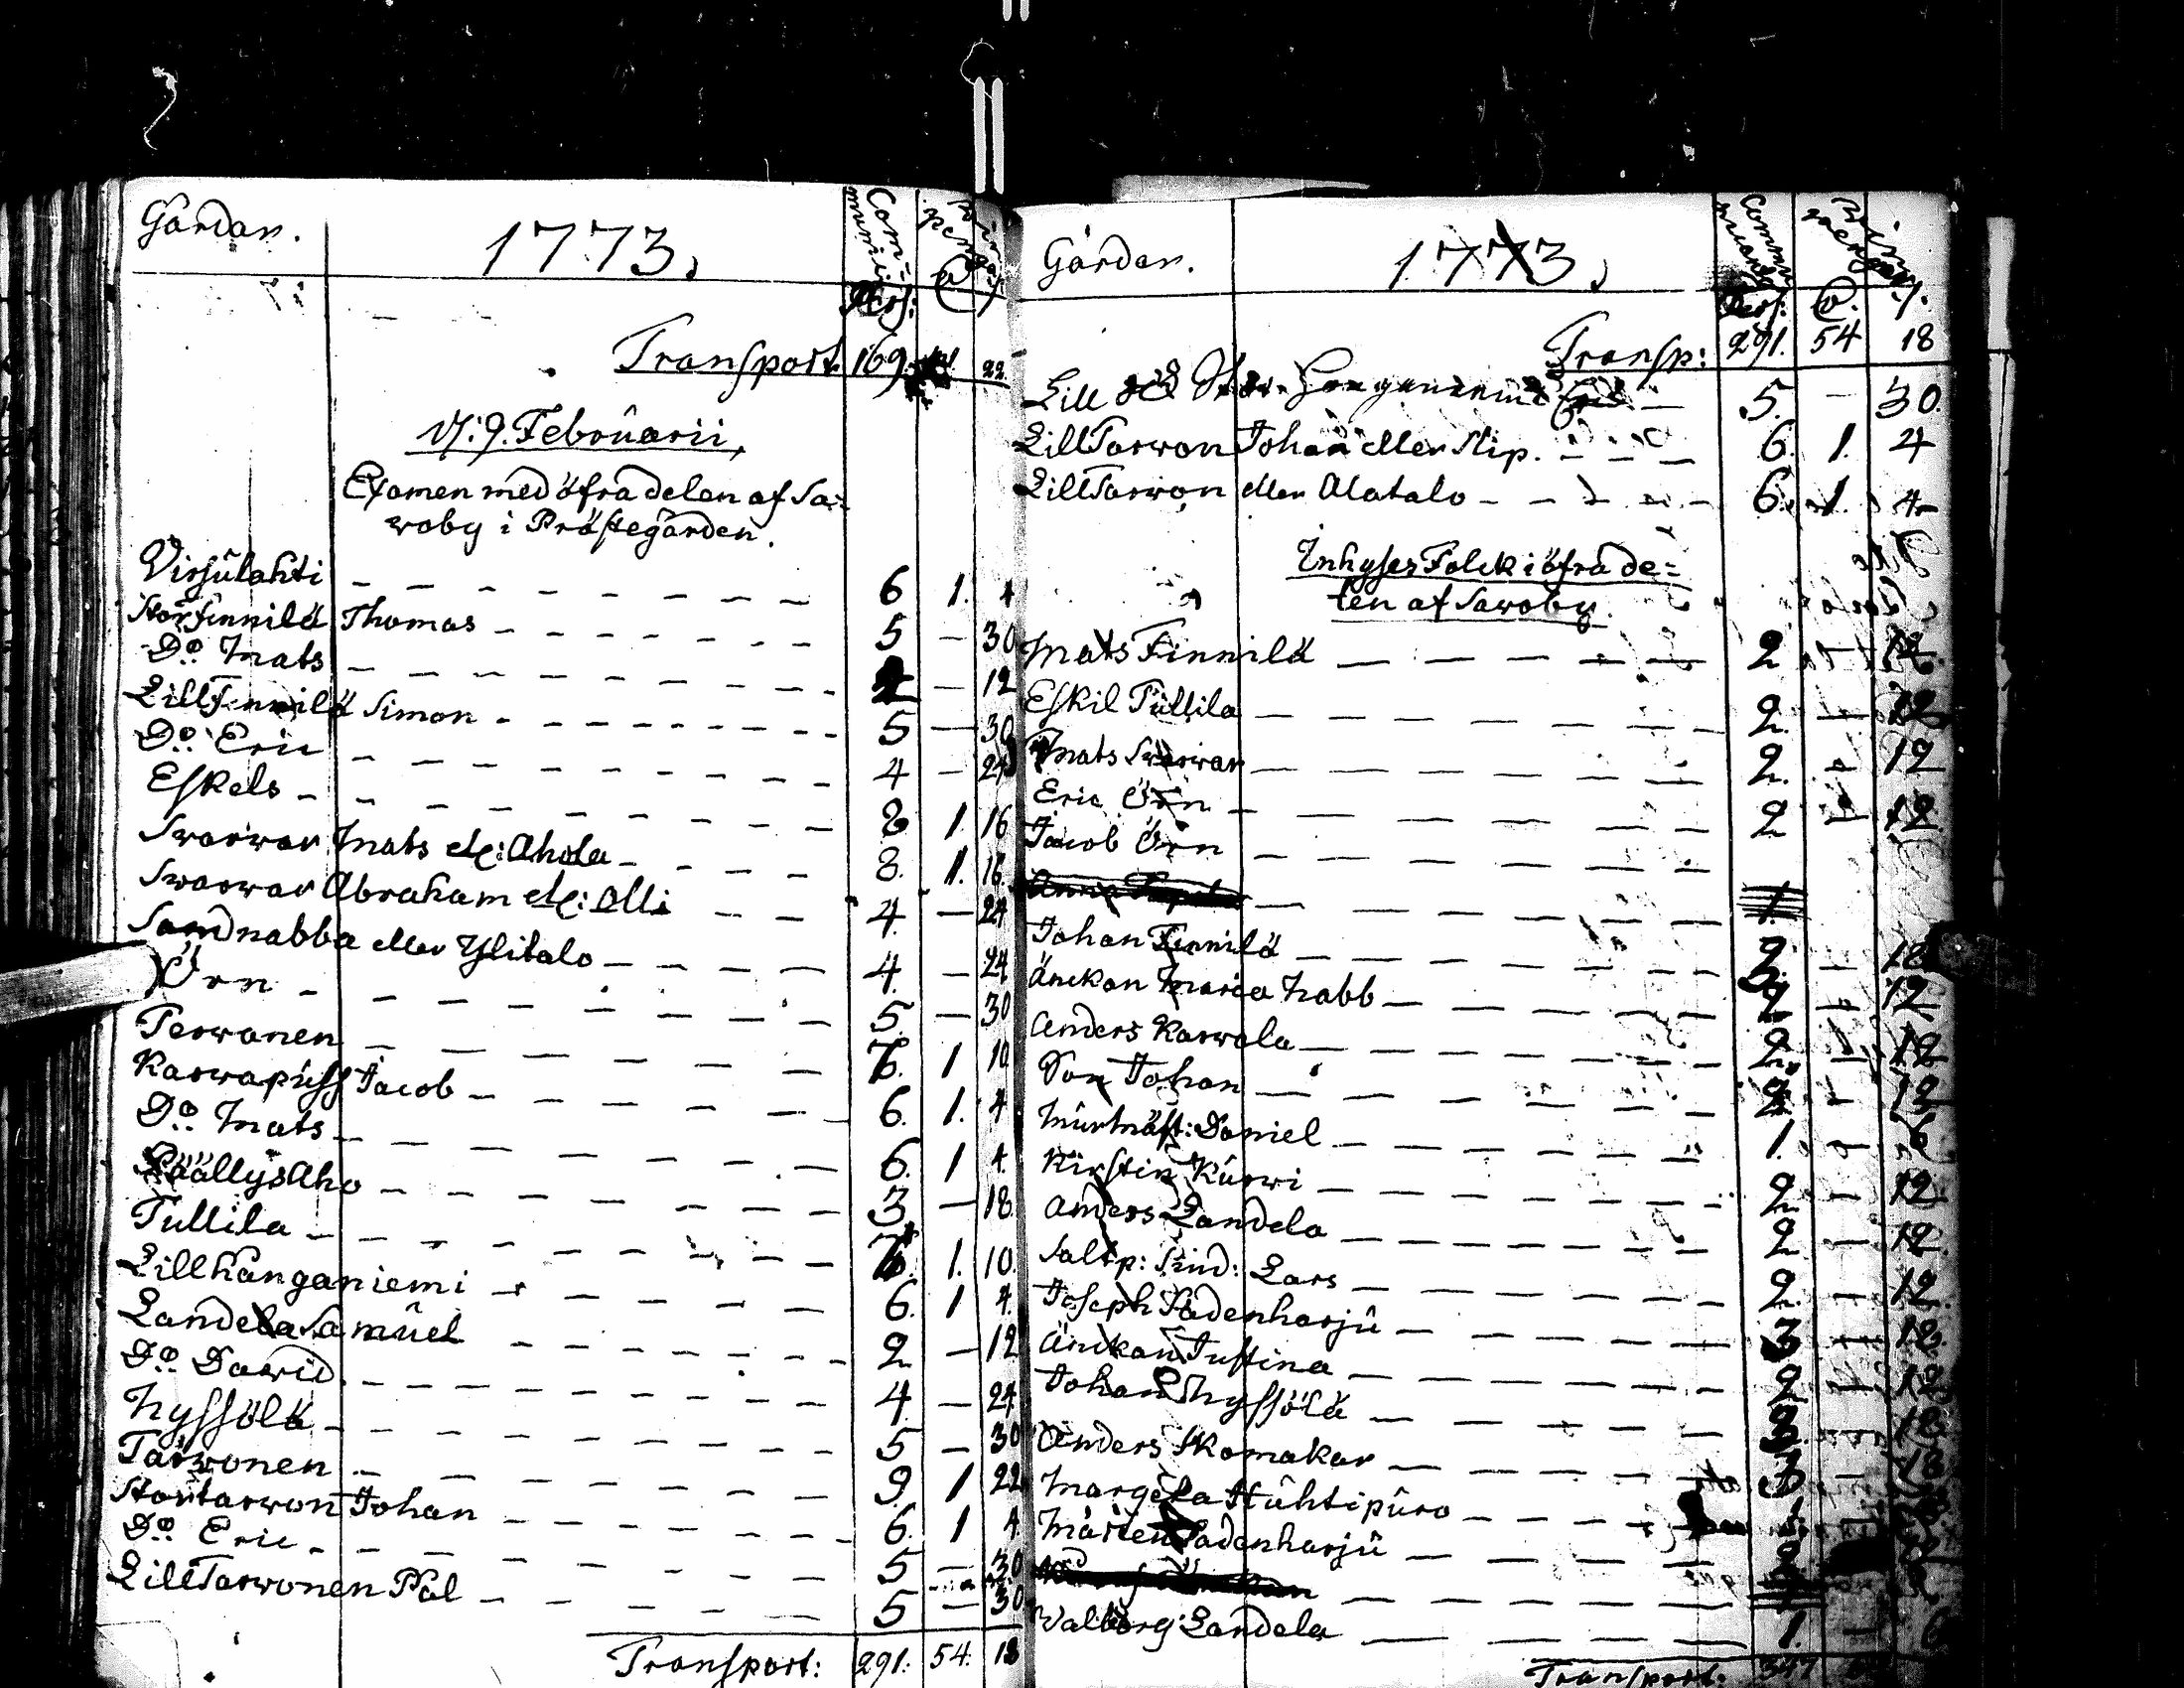 Gården.
1773.
Com-
munic:
Pers:
Transport. 169. 22.
D. 9. Februarii,
Examen med öfra delen af Sa-
woby i Prästegården.
Virsulahti 6 1. 4
Storfinnilä Thomas 5 — 30
Do. Mats — 12
Lillfinnilä Simon 5 — 30
Do. Eric 4 — 24
Eskels 8 1. 16
Swarwar Mats ell: Ahola 8. 1. 16
Swarwar Abraham ell: Olli 4 — 24
Sandnabba eller Ylitalo 4. — 24
Örn 5. — 30
Terwonen 1 10
Karwapuss Jacob 6. 1. 4
Do. Mats 6. 1 4
Päällysaho 3 — 18.
Tullila 1. 10.
Lillhånganiemi 6. 1 4.
Landela Samuel 2 — 12
Do. Dawid 4 — 24
Hyssölä 5 — 30
Tarwonen 9 1 22
Stortarwon Johan 6. 1 4
Do. Eric 5 — 30
Lilltarwonen Pål 5 — 30
Transport: 291. 54. 18
Gården.
1773.
Pers:
Transp: 291. 54 18
Lill och Stor 5. — 30.
Lilltarwon Johan eller Slip. 6. 1. 4
Lilltarwon eller Alatalo 6. 1. 4
Inhyses Folck i öfra de-
len af Sawoby
Mats Finnilä 2 12
Eskil Tullila 2 — 12
Mats Swarwar 2. 12
Eric Örn 2 — 12
Jacob Örn
Anna 1.
Johan Finnilä 18
Änckan Maria Nabb 12
Anders Karwola 2. — 12
Son Johan 12
Murmäst: Daniel 1. — 6
Kirstin Kurwi 2 — 12
Anders Landela 2 — 12
Saltp: Siud: Lars 2. — 12
Joseph Ladenharju 3
Änckan Justina 2 — 12
Johan Hyssölä 18
Anders Skomakar 18
Margeta Huhtipuro
Mårten Ladenharju
Walborg Landela 1. — 6
Transport: 347